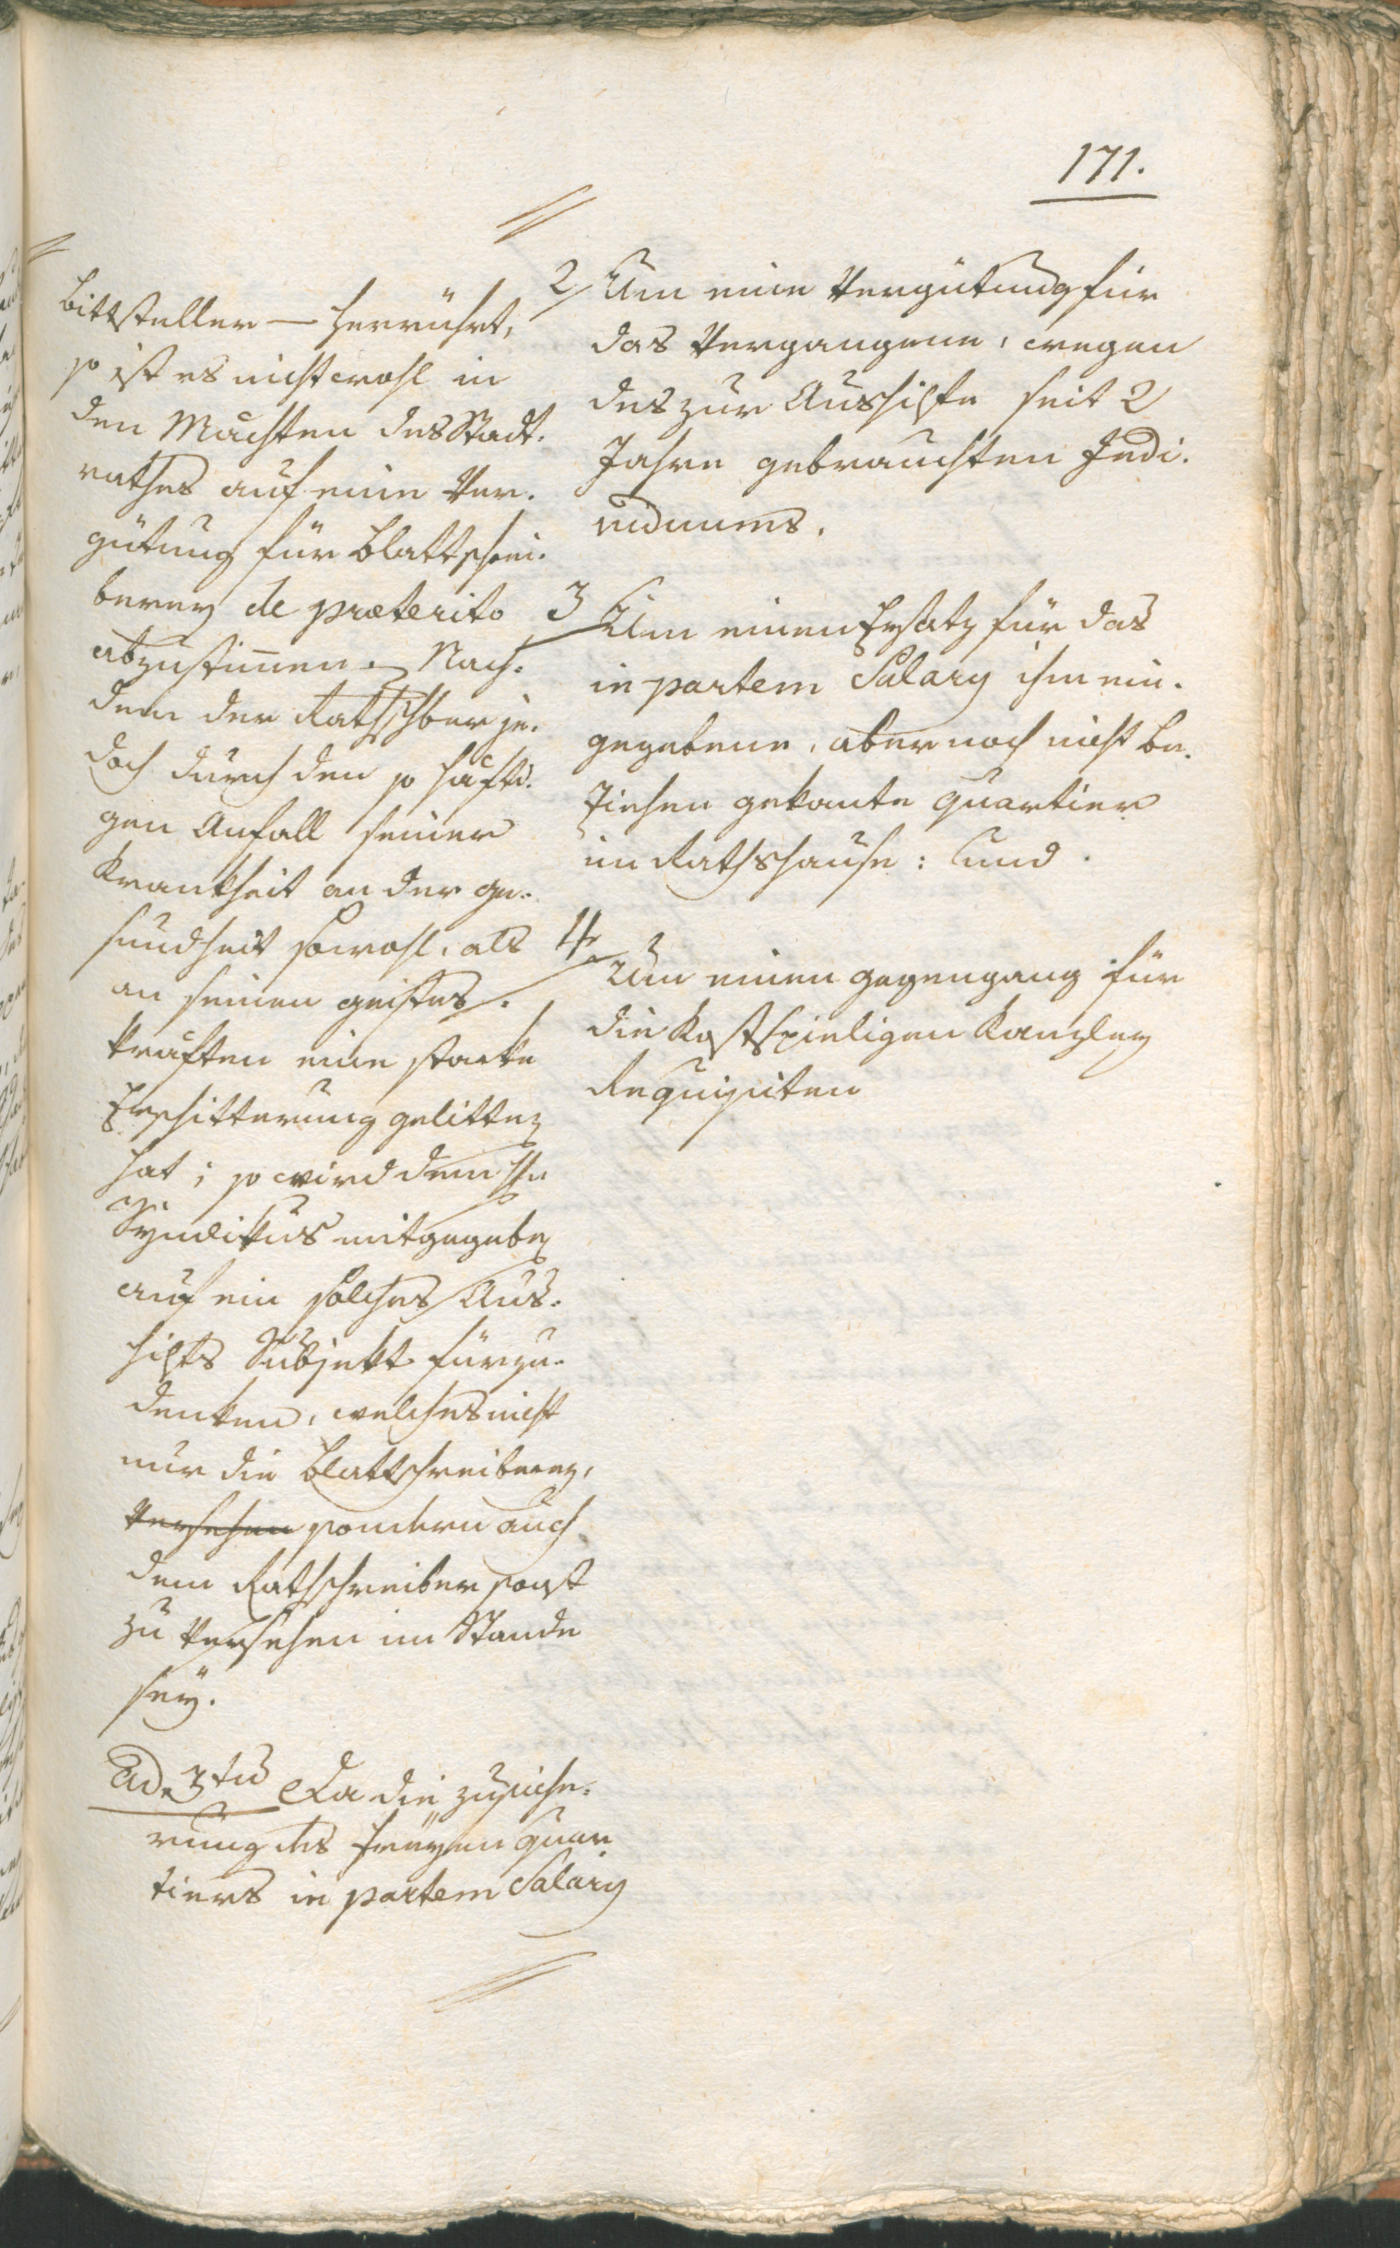 171.
Bittsteller — herrührt,
so ist es nicht wohl in
den Mächten des Stadt-
rathes auf eine Ver-
gütung für Blattschrei-
berey de præterito
abzustimen. Nach-
dem der Rathschber je-
doch durch den so häfti-
gen Anfall seiner
Krankheit an der ge-
sundheit sowohl, als
an seinen geistes-
kräften eine starke
Erschitterung gelitten
hat; so wird dem Hn
Syndikus mitgegeben
auf ein solches Aus-
hilfs Subjekt fürzu-
denken, welches nicht
nur die Blattschreiberey,
versehen sondern auch
dem Rathschreiber sonst
zu versehen im Stande
seÿ.
Ad 3tio Da die zusiche-
rung des freyen Quar
tiers in partem Salary
2 Um eine Vergütung für
das Vergangene, wegen
des zur Aushilfe seit 2
Jahre gebrauchten Indi-
viduums.
3 Um einen Ersatz für das
in partem Salary ihm ein-
gegebene, aber noch nicht be-
ziehen gekonte Quartier
im Rathshause: und
4 Um einen gegengang für
die kostspieligen Kanzley
Requisiten